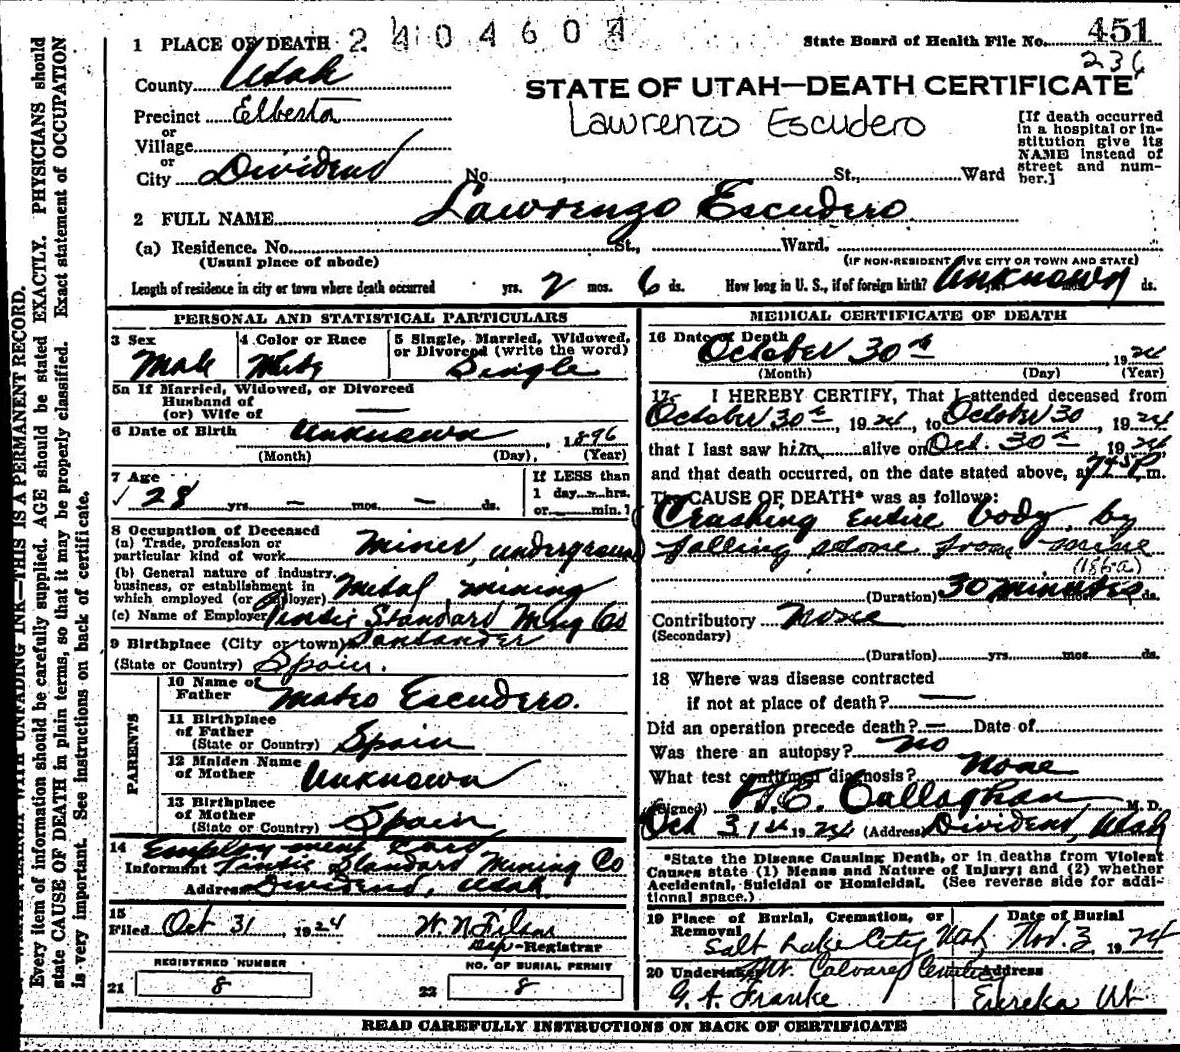 2404604
State Board of Health File No. 451
236
1 PLACE OF DEATH
County Utah
Precinct Elberta
or
Village
or
City Dividend
STATE OF UTAH—DEATH CERTIFICATE
Lawrenzo Escudero
[If death occurred
in a hospital or in-
stitution give its
NAME instead of
street and num-
ber.]
No. St., Ward
2 FULL NAME Lawrenzo Escudero
(a) Residence. No. St., Ward.
(Usual place of abode) (IF NON-RESIDENT GIVE CITY OR TOWN AND STATE)
Length of residence in city or town where death occurred yrs. 2 mos. 6 ds. How long in U. S., if of foreign birth? Unknown ds.
PERSONAL AND STATISTICAL PARTICULARS
3 Sex Male
4 Color or Race White
5 Single, Married, Widowed,
or Divorced (write the word)
Single
5a If Married, Widowed, or Divorced
Husband of
(or) Wife of —
6 Date of Birth Unknown, 1896
(Month) (Day), (Year)
7 Age
28 yrs. — mos. — ds.
If LESS than
1 day — hrs.
or — min.
8 Occupation of Deceased
(a) Trade, profession or
particular kind of work Miner, underground
(b) General nature of industry,
business, or establishment in
which employed (or employer) Metal mining
(c) Name of Employer Tintic Standard Mng Co
9 Birthplace (City or town) Santander
(State or Country) Spain.
PARENTS
10 Name of
Father Mateo Escudero.
11 Birthplace
of Father
(State or Country) Spain
12 Maiden Name
of Mother Unknown
13 Birthplace
of Mother
(State or Country) Spain
14 Employment Card
Informant Tintic Standard Mining Co
Address Dividend, Utah
15
Filed Oct 31, 1924 W. N.
Dep-Registrar
REGISTERED NUMBER
21 8
NO. OF BURIAL PERMIT
22 8
MEDICAL CERTIFICATE OF DEATH
16 Date of Death
October 30th, 1924
(Month) (Day) (Year)
17 I HEREBY CERTIFY, That I attended deceased from
October 30th, 1924, to October 30, 1924
that I last saw him alive on Oct. 30th 1924
and that death occurred, on the date stated above, at 745P m.
The CAUSE OF DEATH* was as follows:
Crushing entire body, by
falling stone from mine
(186a)
(Duration) 30 minutes ds.
Contributory None
(Secondary)
(Duration) yrs. mos. ds.
18 Where was disease contracted
if not at place of death? —
Did an operation precede death? — Date of
Was there an autopsy? No
What test confirmed diagnosis? None
(Signed) H.E. Callaghan M. D.
Oct 31st 1924 (Address) Dividend, Utah
*State the Disease Causing Death, or in deaths from Violent
Causes state (1) Means and Nature of Injury; and (2) whether
Accidental, Suicidal or Homicidal. (See reverse side for addi-
tional space.)
19 Place of Burial, Cremation, or
Removal
Salt Lake City Utah
Date of Burial
Nov. 3, 1924
20 Undertaker Mt. Calvary
G. A. Franke
Address
Eureka Ut
READ CAREFULLY INSTRUCTIONS ON BACK OF CERTIFICATE
WITH UNFADING INK—THIS IS A PERMANENT RECORD.
Every item of information should be carefully supplied. AGE should be stated EXACTLY. PHYSICIANS should
state CAUSE OF DEATH in plain terms, so that it may be properly classified. Exact statement of OCCUPATION
is very important. See instructions on back of certificate.